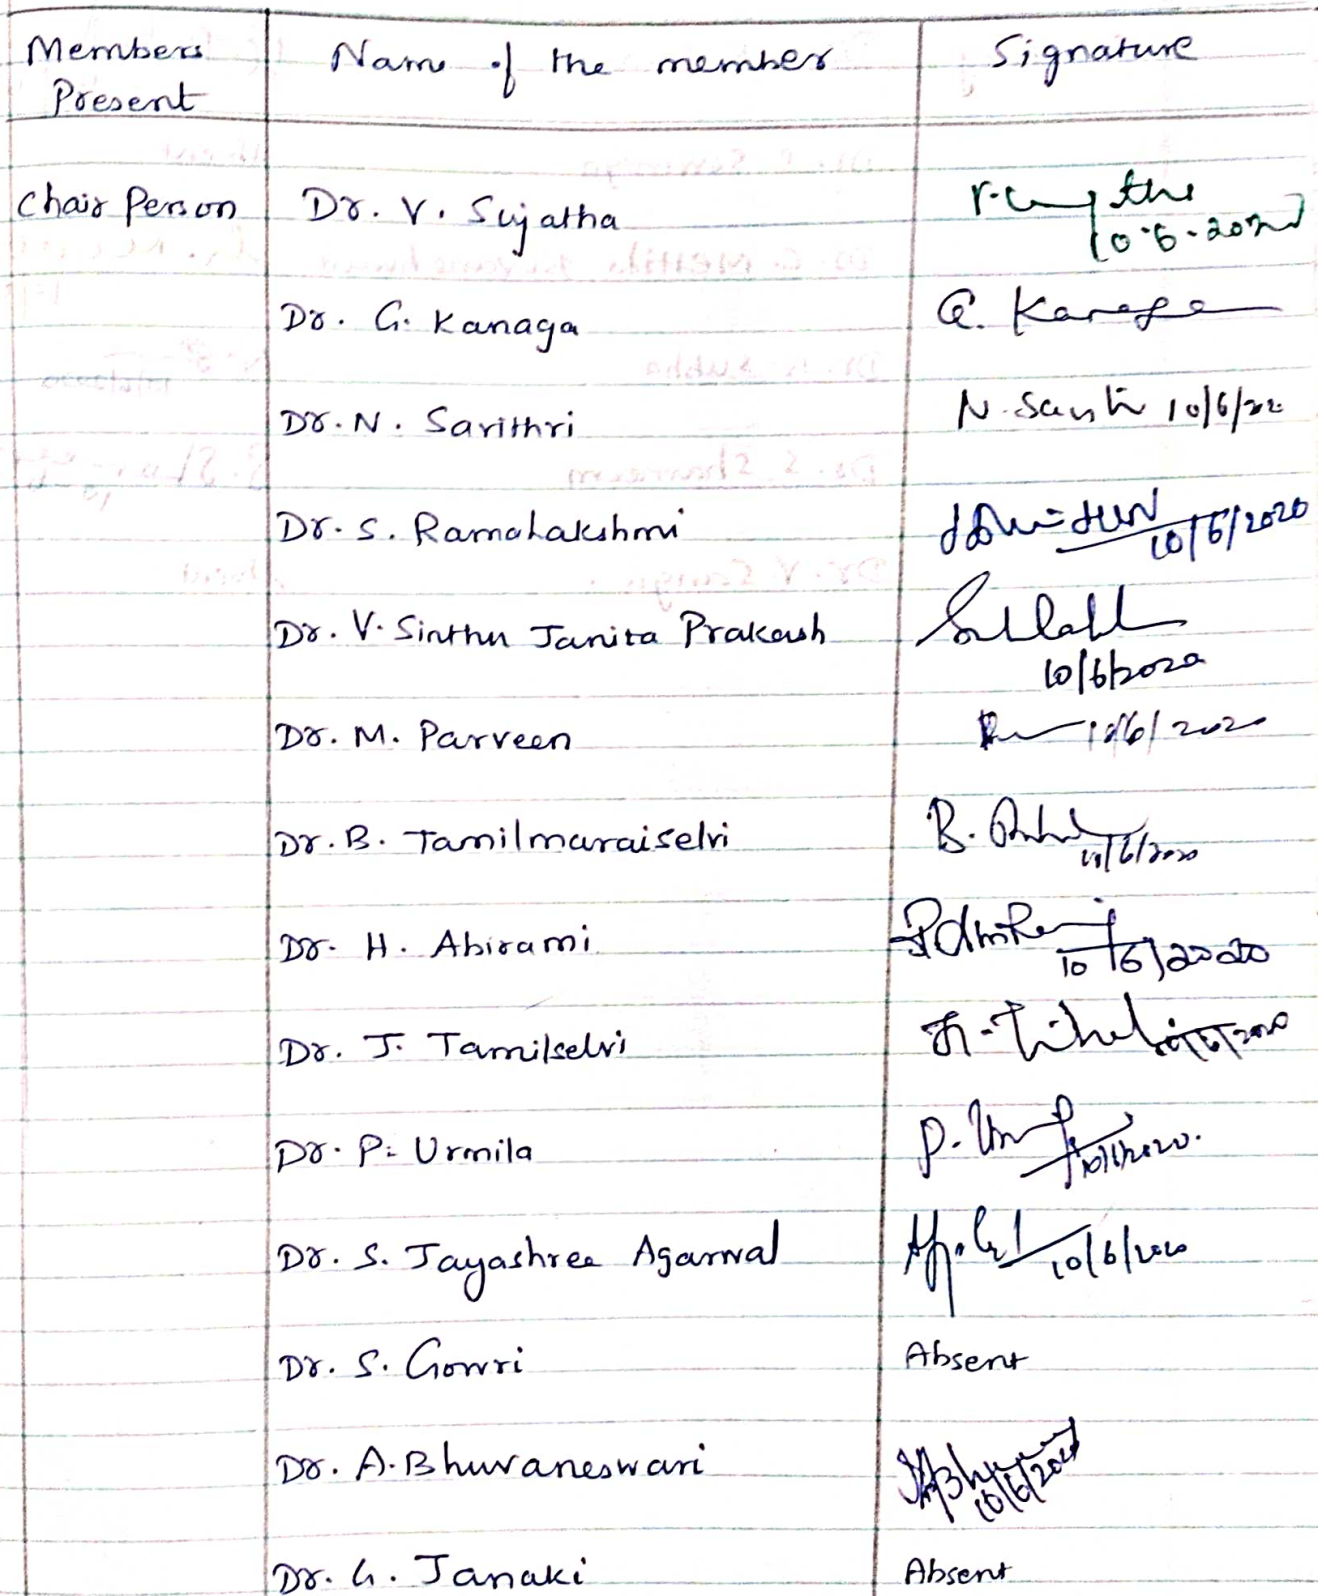 Members Present Name of the member Signature
Chair Person Dr. V. Sujatha 10.6.2020
Dr. G. Kanaga G. Kanaga
Dr. N. Savithri N. 10/6/20
Dr. S. Ramalakshmi 10/6/2020
Dr. V. Sinthu Janita Prakash
10/6/2020
Dr. M. Parveen 10/6/2020
Dr. B. Tamilmaraiselvi B. 10/6/2020
Dr. H. Abirami 10/6/2020
Dr. J. Tamilselvi 10/6/2020
Dr. P. Urmila P. 10/6/2020.
Dr. S. Jayashree Agarwal 10/6/2020
Dr. S. Gowri Absent
Dr. A. Bhuvaneswari 10/6/2020
Dr. G. Janaki Absent